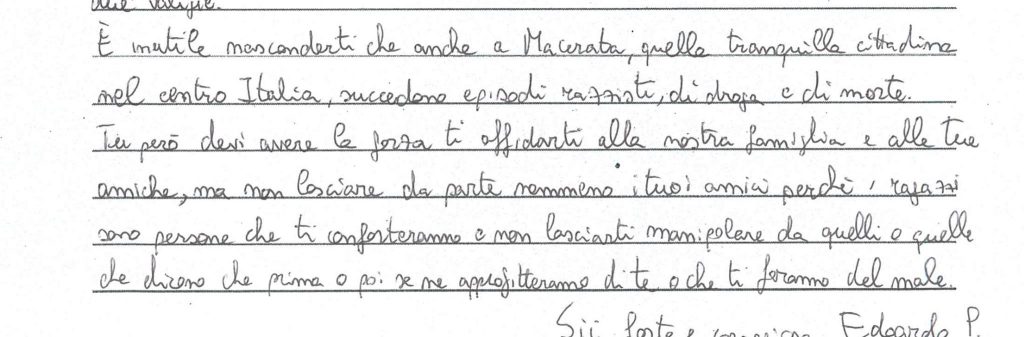 alle valigie.
È inutile nasconderti che anche a Macerata, quella tranquilla cittadina
nel centro Italia, succedono episodi razzisti, di droga e di morte.
Tu però devi avere la forza ti affidarti alla nostra famiglia e alle tue
amiche, ma non lasciare da parte nemmeno i tuoi amici perchè i ragazzi
sono persone che ti conforteranno e non lasciarti manipolare da quelli o quelle
che dicono che prima o poi se ne approfitteranno di te o che ti faranno del male.
Sii forte e Edoardo P.